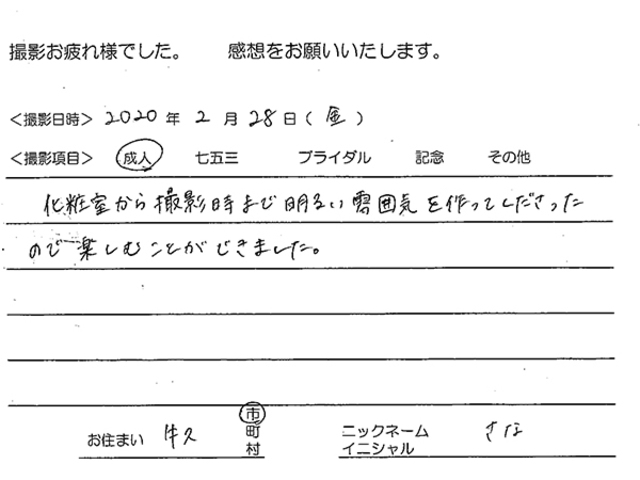 撮影お疲れ様でした。 感想をお願いいたします。
<撮影日時> 2020 年 2 月 28 日 ( 金 )
<撮影項目> 成人 七五三 ブライダル 記念 その他
化粧室から撮影時まで明るい雰囲気を作ってくださった
ので楽しむことができました。
お住まい 牛久 市 町 村 ニックネーム イニシャル さな